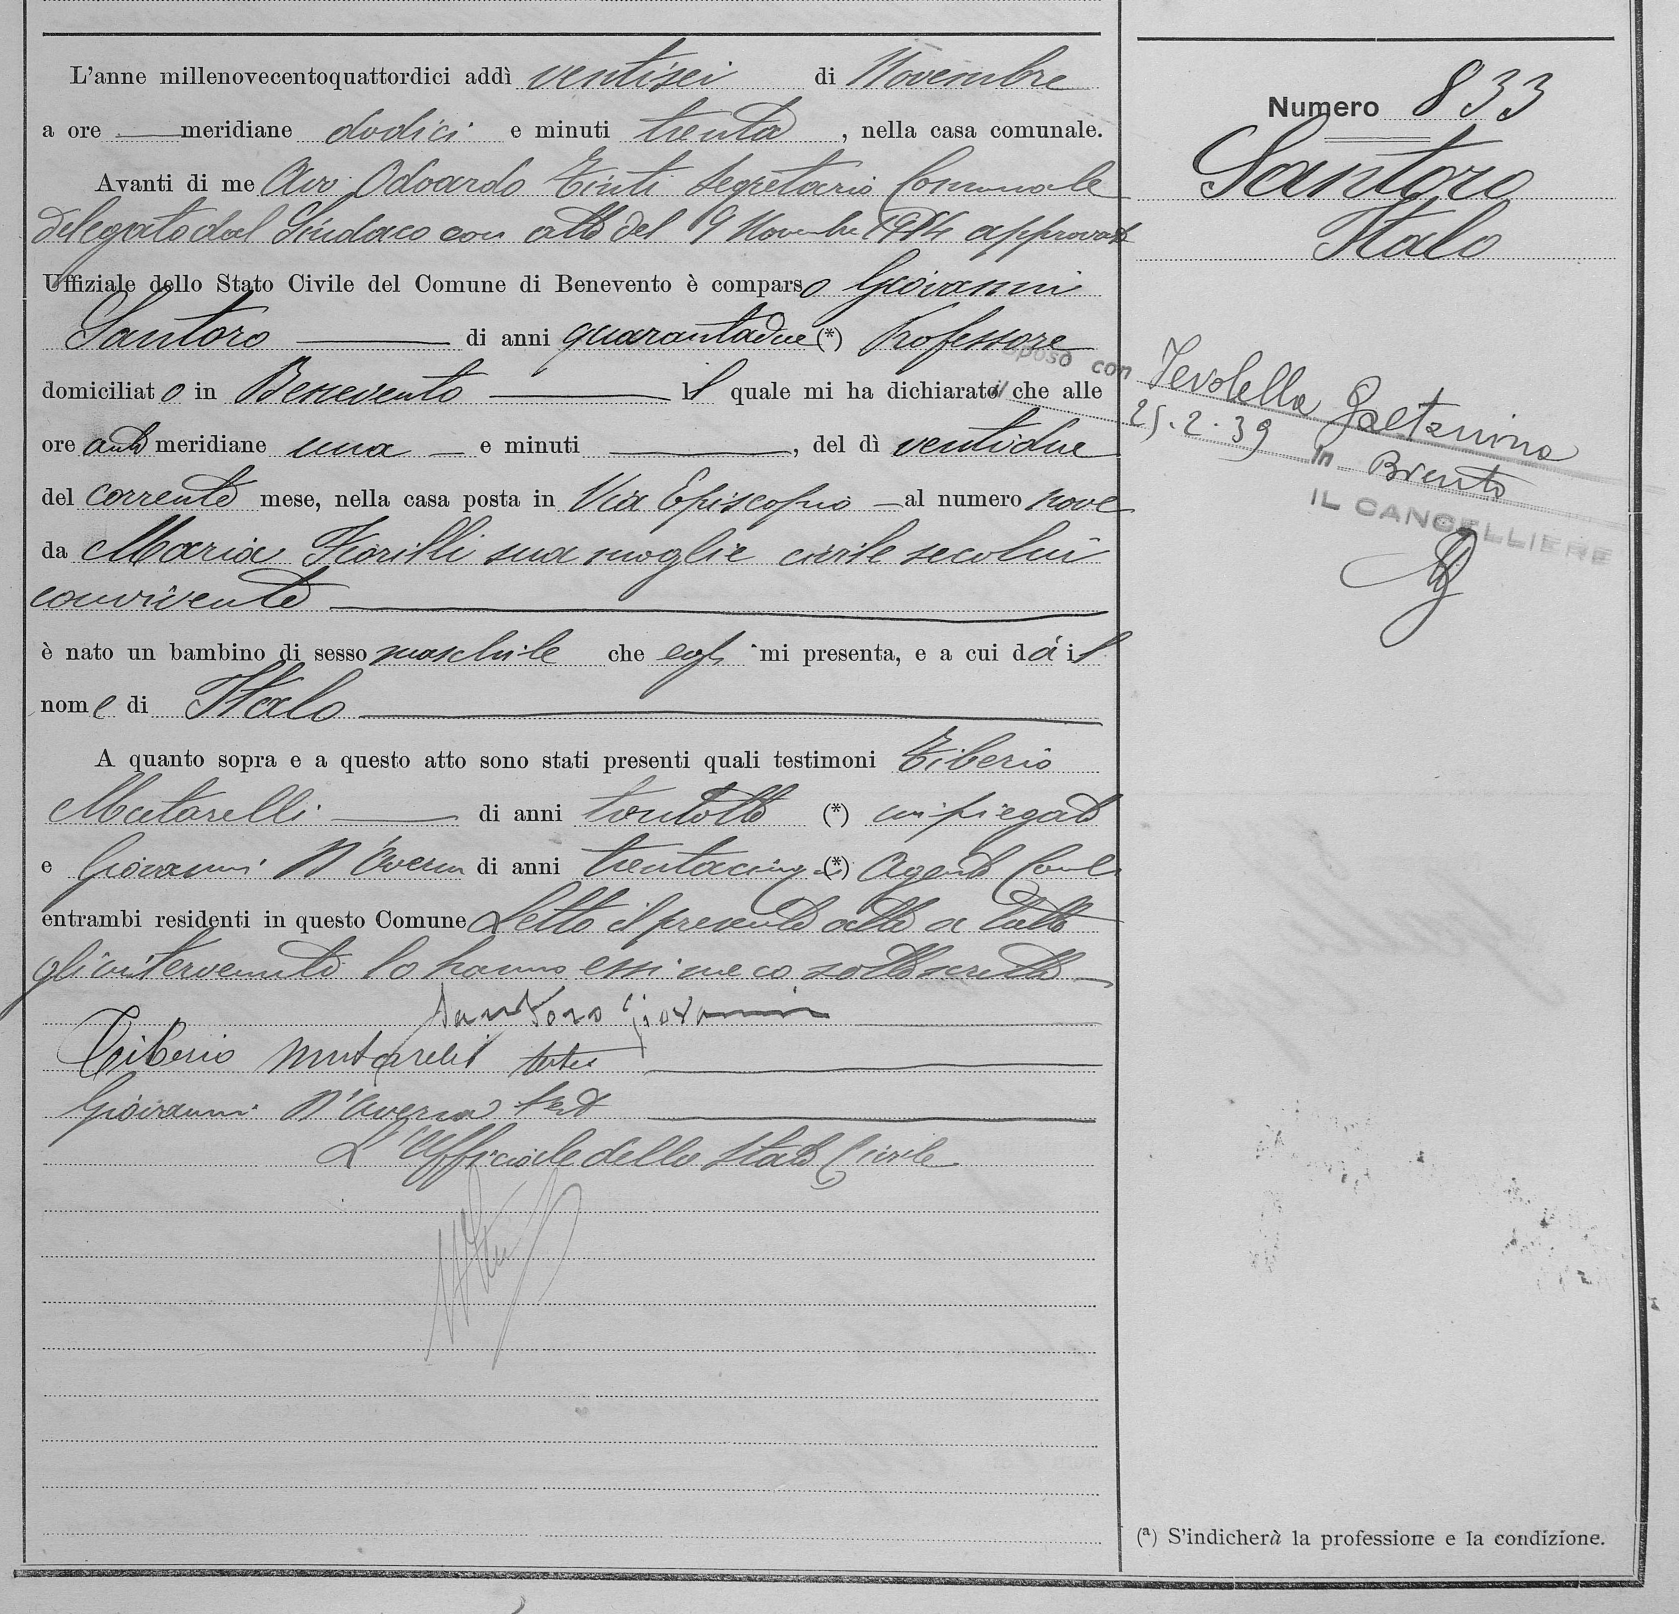 L'anno millenovecentoquattordici addì ventisei di Novembre
a ore meridiane dodici e minuti trenta, nella casa comunale.
Avanti di me Avv. Odoardo Tinti Segretario Comunale
delegato dal Sindaco con atto del 9 Novembre 1914 approvato
Uffiziale dello Stato Civile del Comune di Benevento è comparso Giovanni
Santoro di anni quarantadue (*) Professore
domiciliato in Benevento il quale mi ha dichiarato che alle
ore anti meridiane una e minuti , del dì ventidue
del corrente mese, nella casa posta in Via Episcopio al numero nove
da Maria Fiorilli sua moglie civile secolui
convivente
è nato un bambino di sesso maschile che egli mi presenta, e a cui dà il
nome di Italo
A quanto sopra e a questo atto sono stati presenti quali testimoni Tiberio
Mutarelli di anni trentotto (*) impiegato
e Giovanni D'Aversa di anni trentacinque (*) Agente
entrambi residenti in questo Comune Letto il presente atto a tutti
gli intervenuti lo hanno essi meco sottoscritto
Santoro Giovanni
Tiberio Mutarelli teste
Giovanni D'Aversa test
L'Ufficiale dello Stato Civile
Numero 833
Santoro
Italo
Sposo con Tevolella Gaetanina
il 25.2.39 In Bvento
IL CANCELLIERE
(ª) S'indicherà la professione e la condizione.